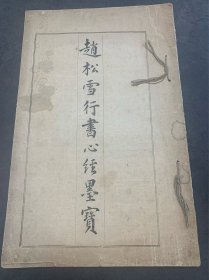 趙松雪行書心經墨寶